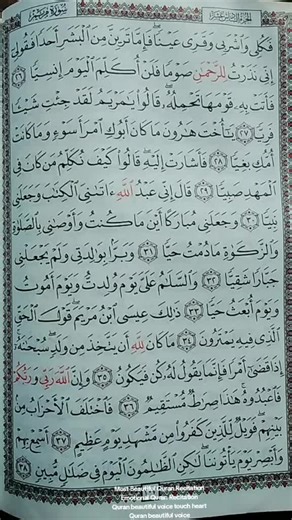 الجزء السادس عشر
سورة مريم
فَكُلِي وَاشْرَبِي وَقَرِّي عَيْنًا فَإِمَّا تَرَيِنَّ مِنَ الْبَشَرِ أَحَدًا فَقُولِي
إِنِّي نَذَرْتُ لِلرَّحْمَٰنِ صَوْمًا فَلَنْ أُكَلِّمَ الْيَوْمَ إِنسِيًّا ٢٦
فَأَتَتْ بِهِ قَوْمَهَا تَحْمِلُهُ قَالُوا يَا مَرْيَمُ لَقَدْ جِئْتِ شَيْئًا
فَرِيًّا ٢٧ يَا أُخْتَ هَارُونَ مَا كَانَ أَبُوكِ امْرَأَ سَوْءٍ وَمَا كَانَتْ
أُمُّكِ بَغِيًّا ٢٨ فَأَشَارَتْ إِلَيْهِ قَالُوا كَيْفَ نُكَلِّمُ مَن كَانَ فِي
الْمَهْدِ صَبِيًّا ٢٩ قَالَ إِنِّي عَبْدُ اللَّهِ آتَانِيَ الْكِتَابَ وَجَعَلَنِي
نَبِيًّا ٣٠ وَجَعَلَنِي مُبَارَكًا أَيْنَ مَا كُنتُ وَأَوْصَانِي بِالصَّلَاةِ
وَالزَّكَاةِ مَا دُمْتُ حَيًّا ٣١ وَبَرًّا بِوَالِدَتِي وَلَمْ يَجْعَلْنِي
جَبَّارًا شَقِيًّا ٣٢ وَالسَّلَامُ عَلَيَّ يَوْمَ وُلِدتُّ وَيَوْمَ أَمُوتُ
وَيَوْمَ أُبْعَثُ حَيًّا ٣٣ ذَٰلِكَ عِيسَى ابْنُ مَرْيَمَ قَوْلَ الْحَقِّ
الَّذِي فِيهِ يَمْتَرُونَ ٣٤ مَا كَانَ لِلَّهِ أَن يَتَّخِذَ مِن وَلَدٍ سُبْحَانَهُ
إِذَا قَضَىٰ أَمْرًا فَإِنَّمَا يَقُولُ لَهُ كُن فَيَكُونُ ٣٥ وَإِنَّ اللَّهَ رَبِّي وَرَبُّكُمْ
فَاعْبُدُوهُ هَٰذَا صِرَاطٌ مُّسْتَقِيمٌ ٣٦ فَاخْتَلَفَ الْأَحْزَابُ مِن
بَيْنِهِمْ فَوَيْلٌ لِّلَّذِينَ كَفَرُوا مِن مَّشْهَدِ يَوْمٍ عَظِيمٍ ٣٧ أَسْمِعْ بِهِمْ
وَأَبْصِرْ يَوْمَ يَأْتُونَنَا لَٰكِنِ الظَّالِمُونَ الْيَوْمَ فِي ضَلَالٍ مُّبِينٍ ٣٨
Most Beautiful Quran Recitation
Emotional Quran Recitation
Quran beautiful voice touch heart
Quran beautiful voice